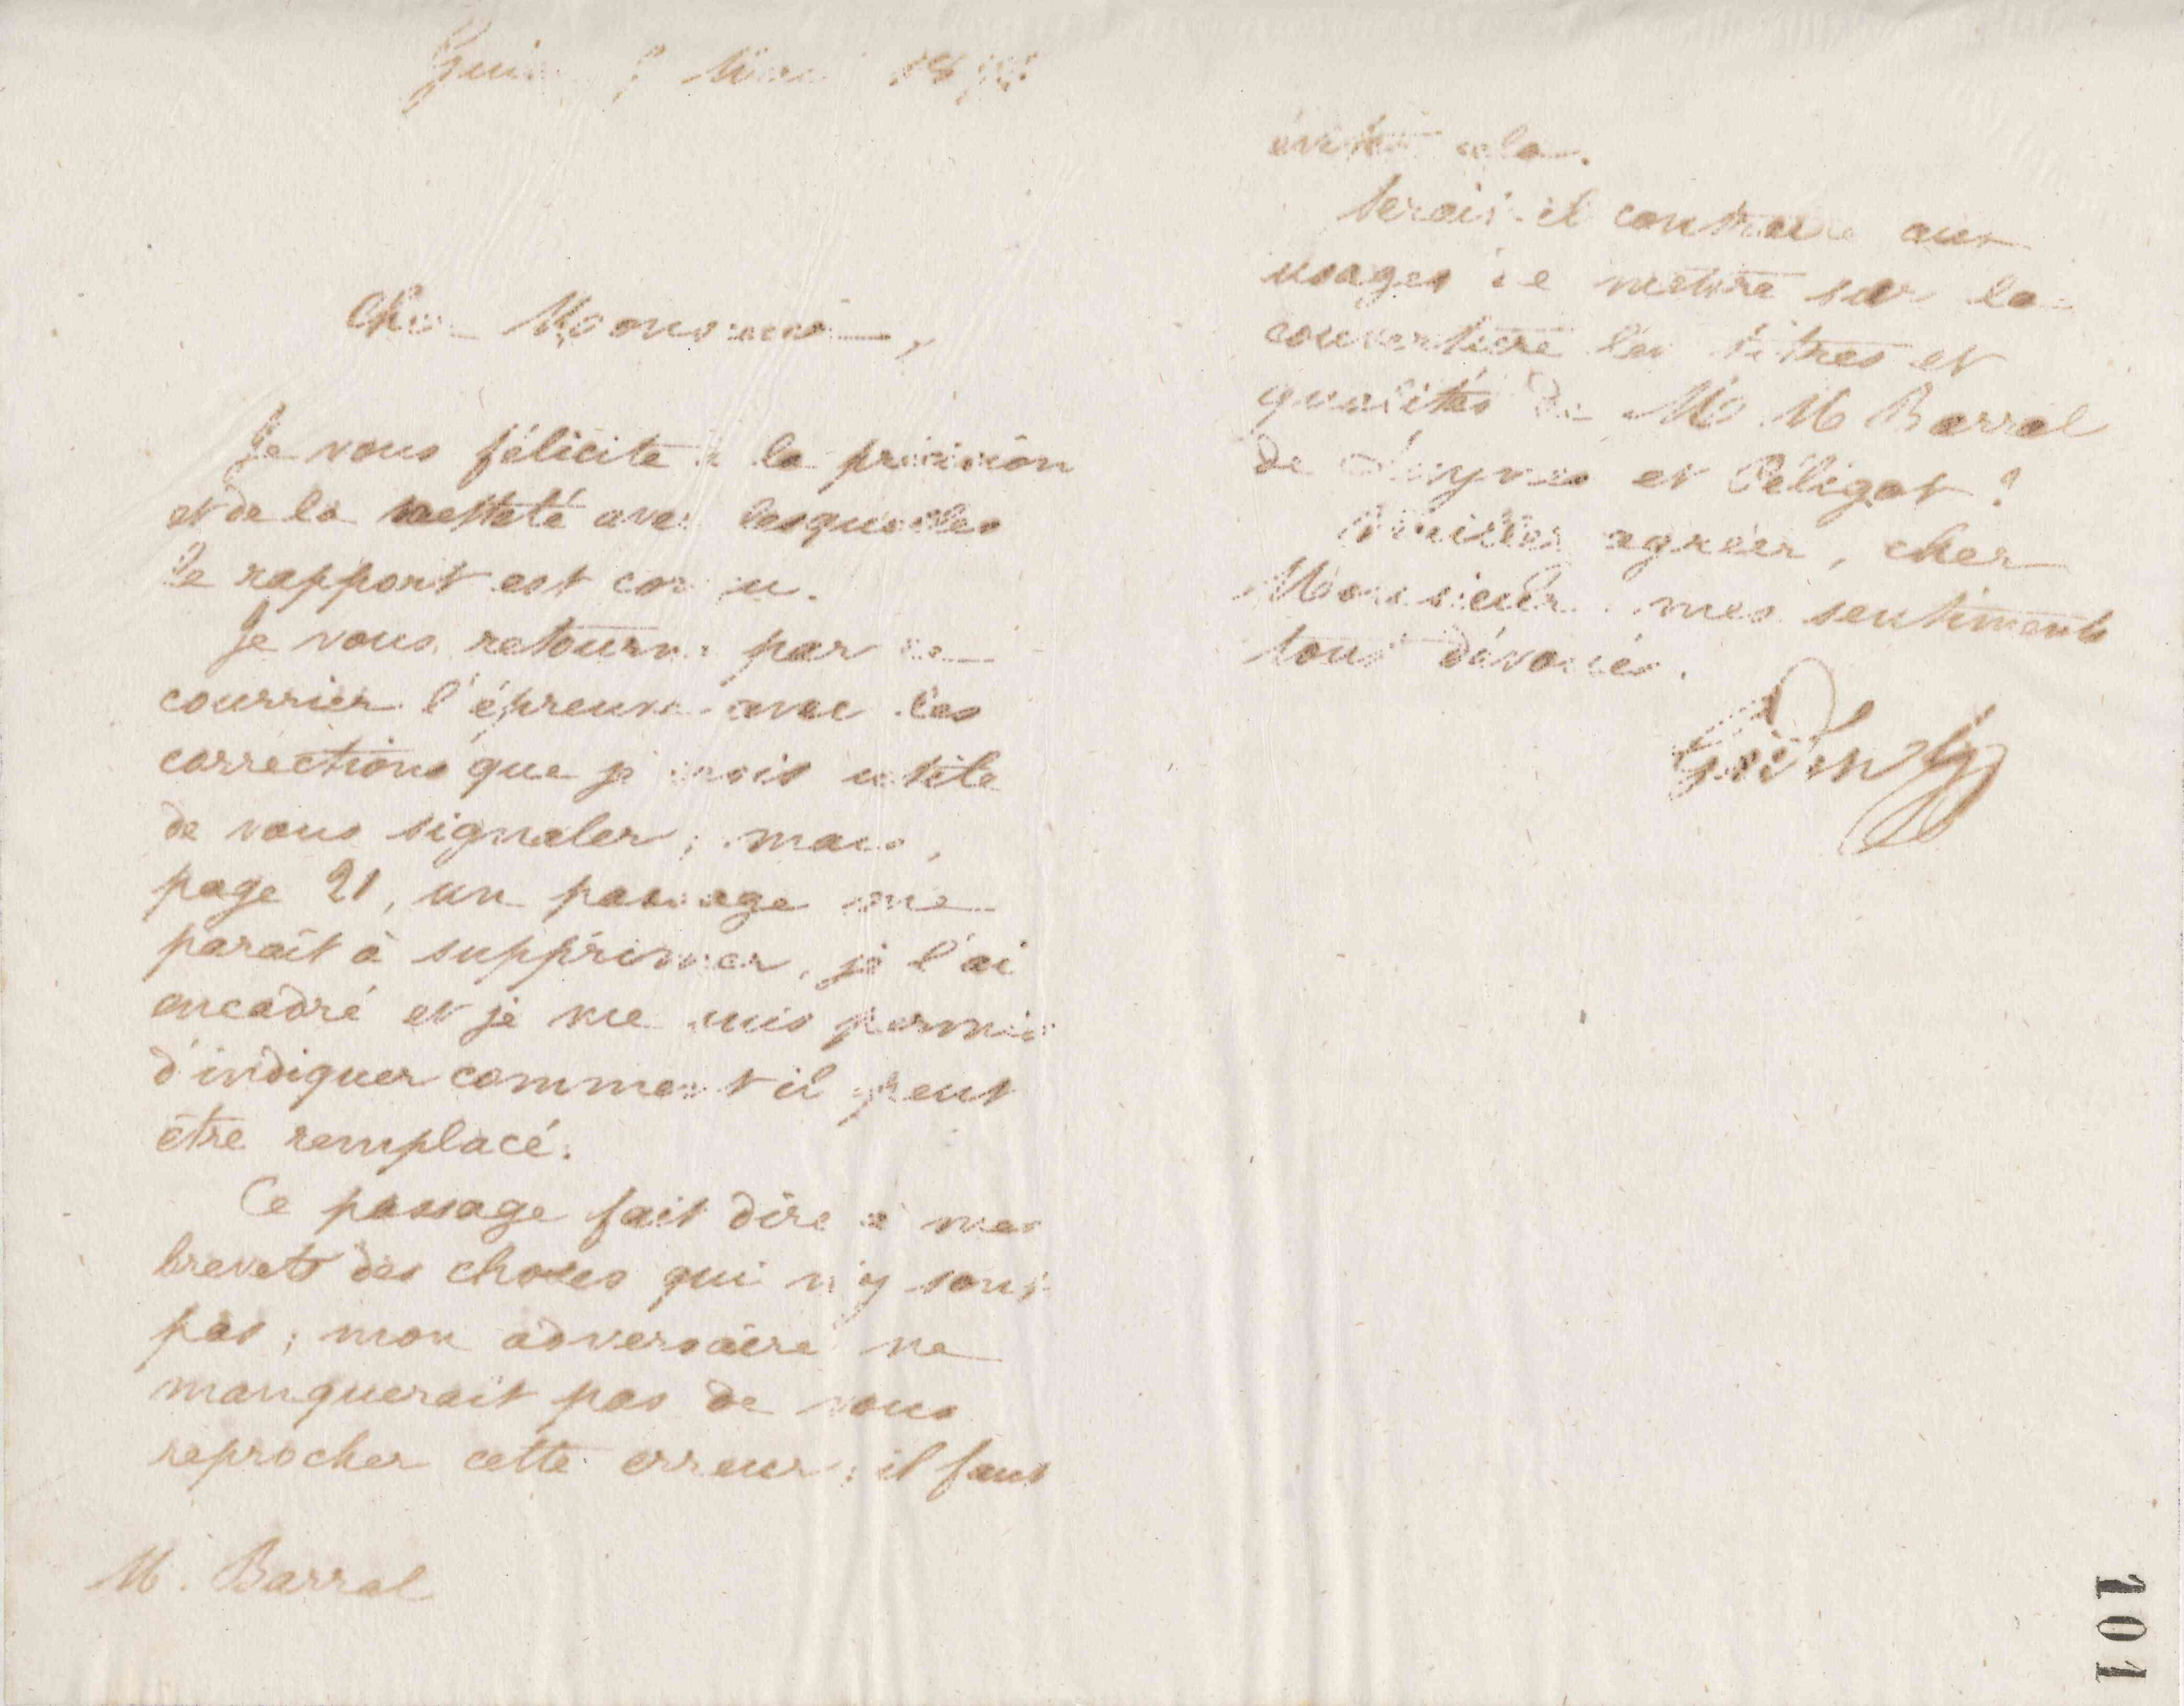 Cher Monsieur,
Je vous félicite de la précision
et de la netteté avec lesquelles
le rapport est conçu.
Je vous retourne par ce
courrier l'épreuve avec les
corrections que je crois utile
de vous signaler ; mais,
page 21, un passage me
paraît à supprimer, je l'ai
encadré et je me suis permis
d'indiquer comment il peut
être remplacé.
Ce passage fait dire à mes
brevets des choses qui n'y sont
pas ; mon adversaire ne
manquerait pas de vous
reprocher cette erreur ; il faut
M. Barral
éviter cela.
Serait-il contraire aux
usages de mettre sur la
couverture les titres et
qualités de M. M Barral
de et Péligot ?
Veuillez agréer, cher
Monsieur, mes sentiments
tout dévoués.
101